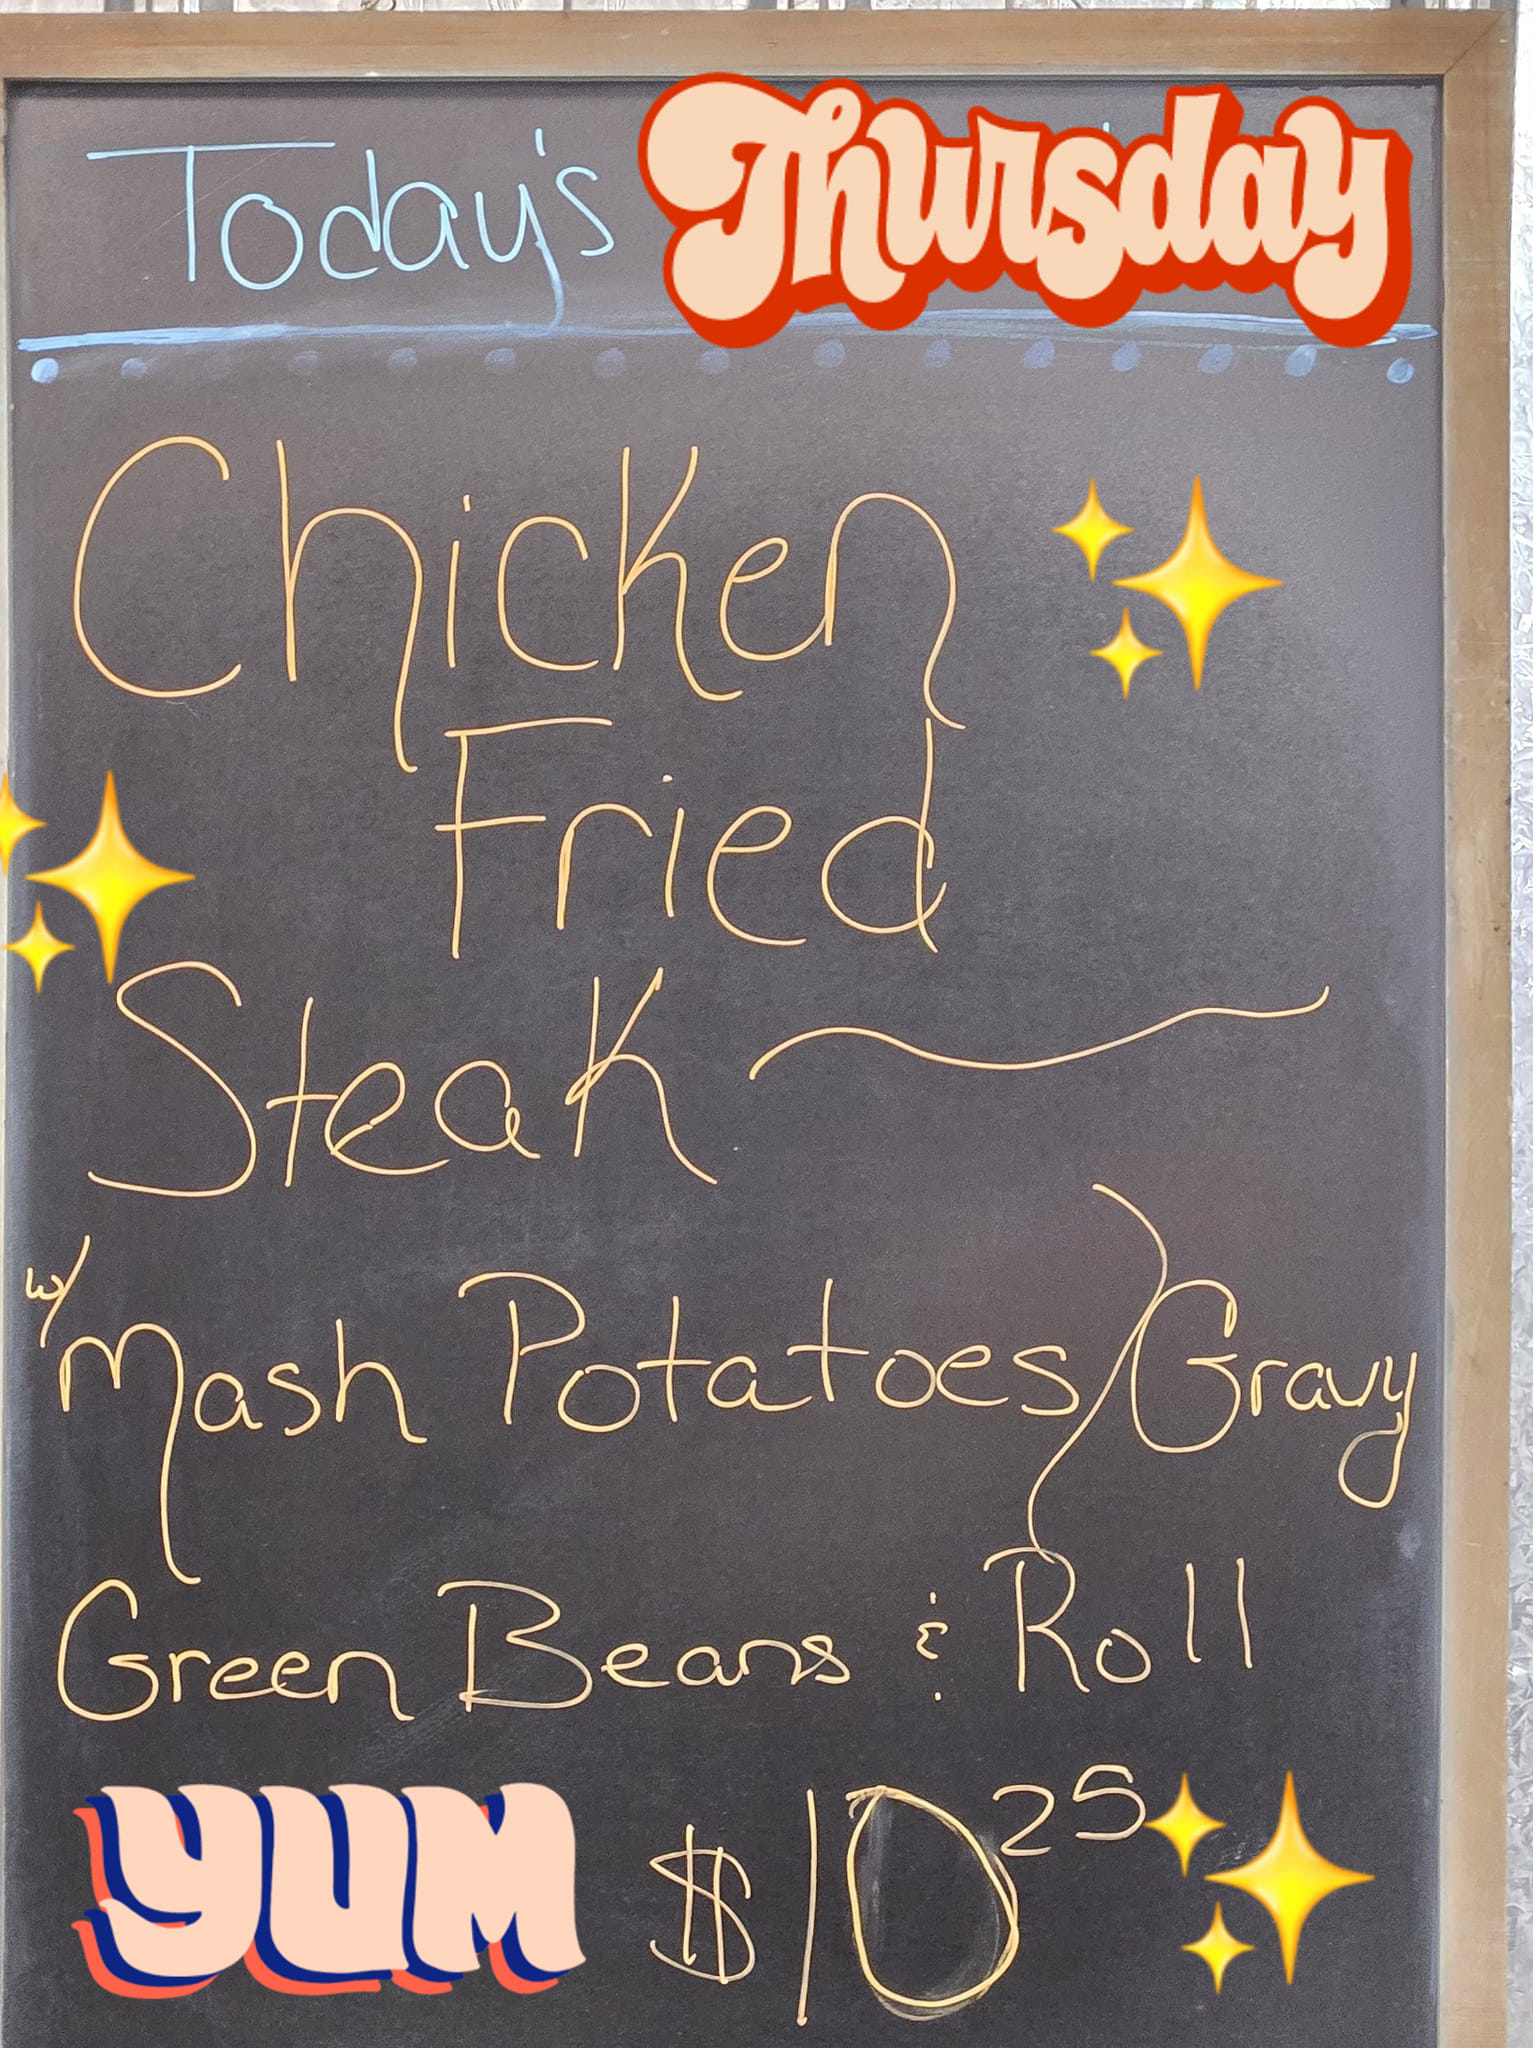 Today's Thursday
Chicken
Fried
Steak
w/ Mash Potatoes/Gravy
Green Beans & Roll
YUM $10 25